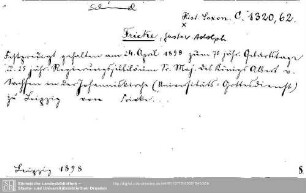 Hist. Saxon. C. 1320, 62
Fricke, Gustav Adolph
Festpredigt gehalten am 24. April 1898 zum 70 jähr. Geburtstage
u. 25 jähr. Regierungsjubiläum Sr. Maj. des Königs Albert v.
Sachsen in der Johanniskirche (Universitäts-Gottesdienst)
zu Leipzig von
Leipzig 1898
8
Sächsische Landesbibliothek -
Staats- und Universitätsbibliothek Dresden